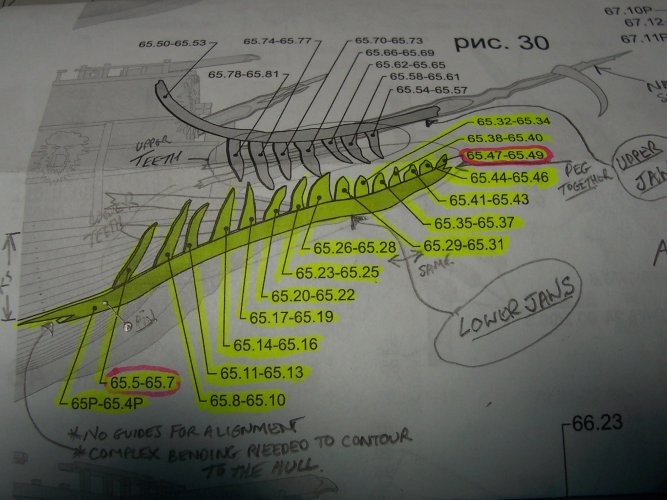 67.10P
65.50-65.53
65.74-65.77
65.70-65.73
рис. 30
67.12
65.66-65.69
67.11P
65.78-65.81
65.62-65.65
65.58-65.61
65.54-65.57
UPPER
TEETH
65.32-65.34
65.38-65.40
65.47-65.49
65.44-65.46
PEG
TOGETHER
UPPER
JAW
65.41-65.43
LOWER
TEETH
65.35-65.37
65.26-65.28
65.29-65.31
65.23-65.25
SAME
65.20-65.22
65.17-65.19
LOWER JAWS
65.14-65.16
65.11-65.13
65.5-65.7
65P-65.4P
65.8-65.10
66.23
*NO GUIDES FOR ALIGNMENT
*COMPLEX BENDING NEEDED TO CONTOUR
TO THE HULL.